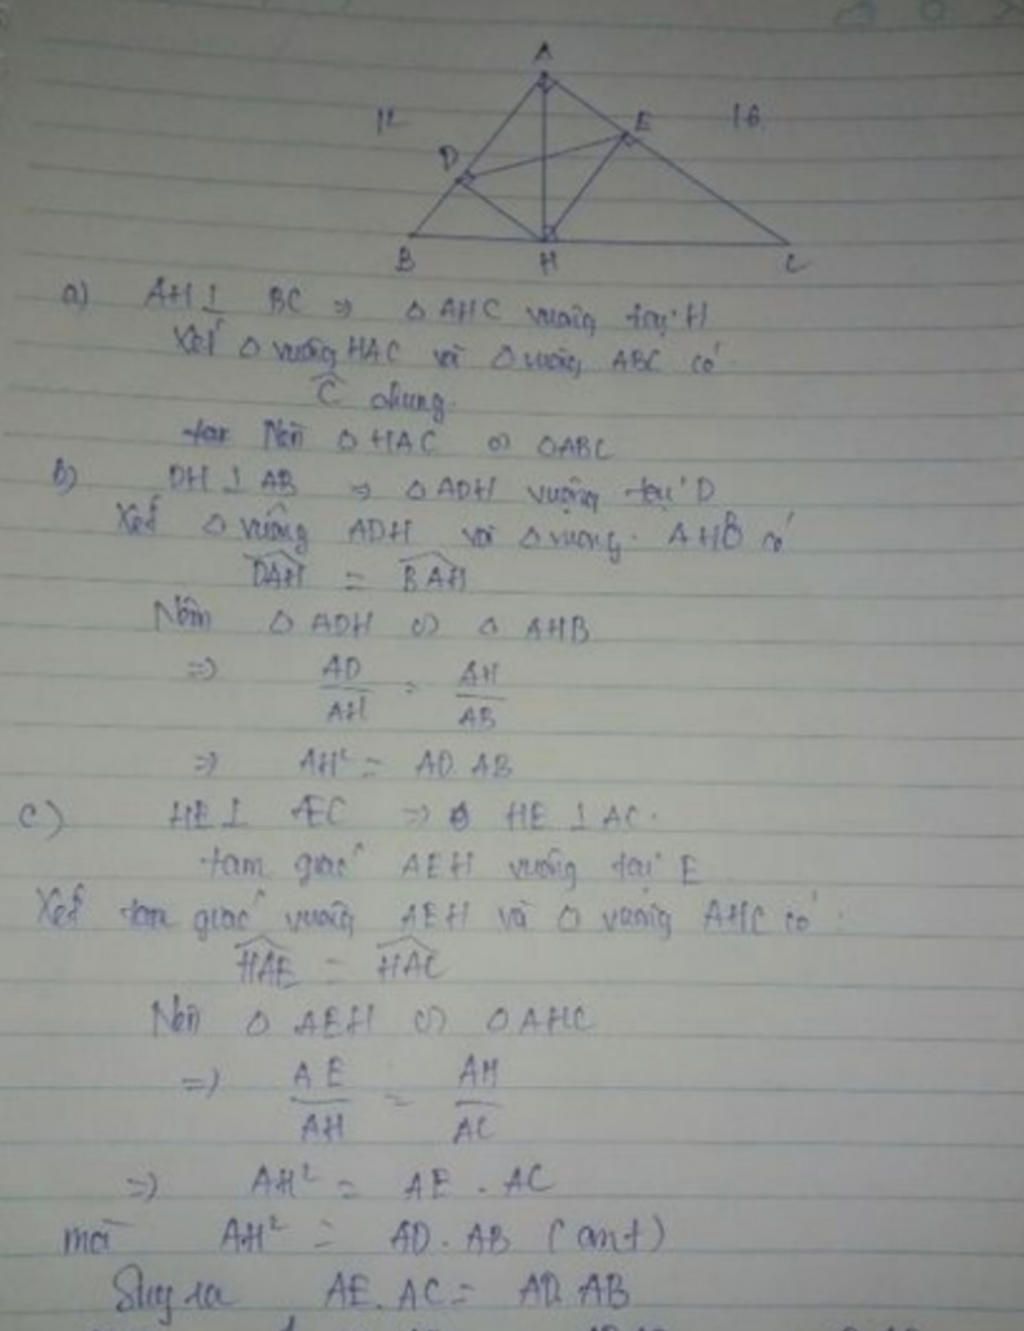 A
12
E
16
D
B
H
C
a) AH ⊥ BC ⇒ Δ AHC vuông tại H
Xét Δ vuông HAC và Δ vuông ABC có
Ĉ chung
Nên Δ HAC ∽ ΔABC
b) DH ⊥ AB ⇒ Δ ADH vuông tại D
Xét Δ vuông ADH và Δ vuông AHB có
D̂AH = B̂AH
Nên Δ ADH ∽ Δ AHB
⇒ AD/AH = AH/AB
⇒ AH² = AD. AB
c) HE ⊥ EC ⇒ HE ⊥ AC.
tam giác AEH vuông tại E
Xét tam giác vuông AEH và Δ vuông AHC có:
ĤAE = ĤAC
Nên Δ AEH ∽ Δ AHC
⇒ AE/AH = AH/AC
⇒ AH² = AE . AC
mà AH² = AD. AB (cmt)
Suy ra AE. AC = AD. AB